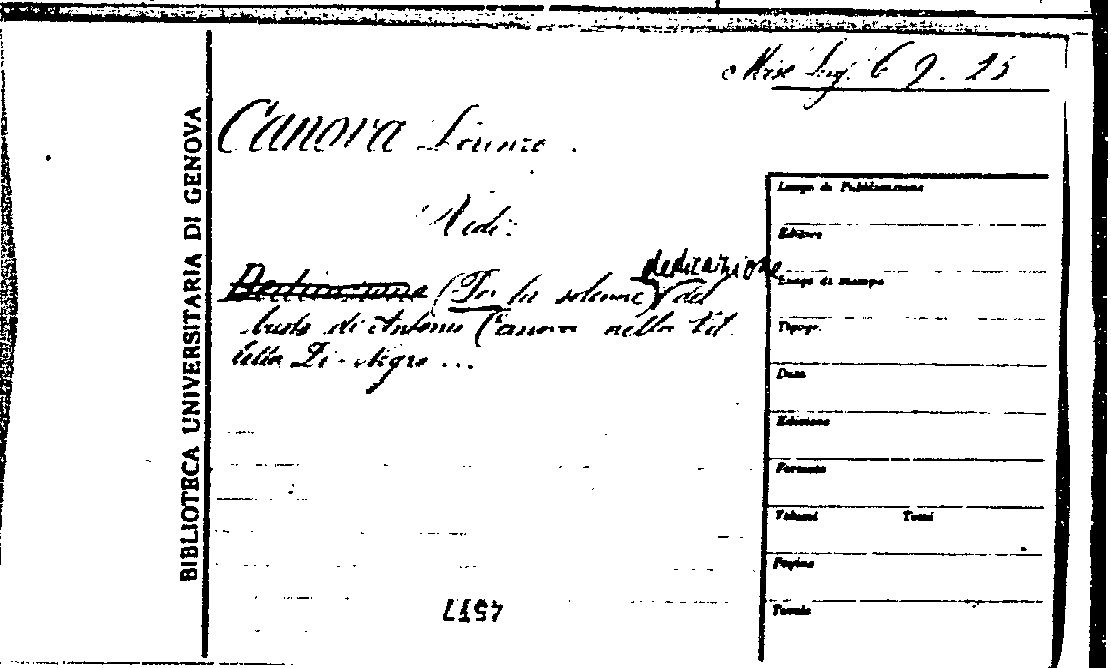 Misc Lig. 6 9. 25
Canova Lorenzo.
Vedi:
dedicazione
Dedicazione (Per la solenne) del
busto di Antonio Canova nella Vil
letta Di-Negro ...
BIBLIOTECA UNIVERSITARIA DI GENOVA
Luogo di Pubblicazione
Editore
Luogo di stampa
Tipogr.
Data
Edizione
Formato
Volumi Tomi
Pagine
Tavole